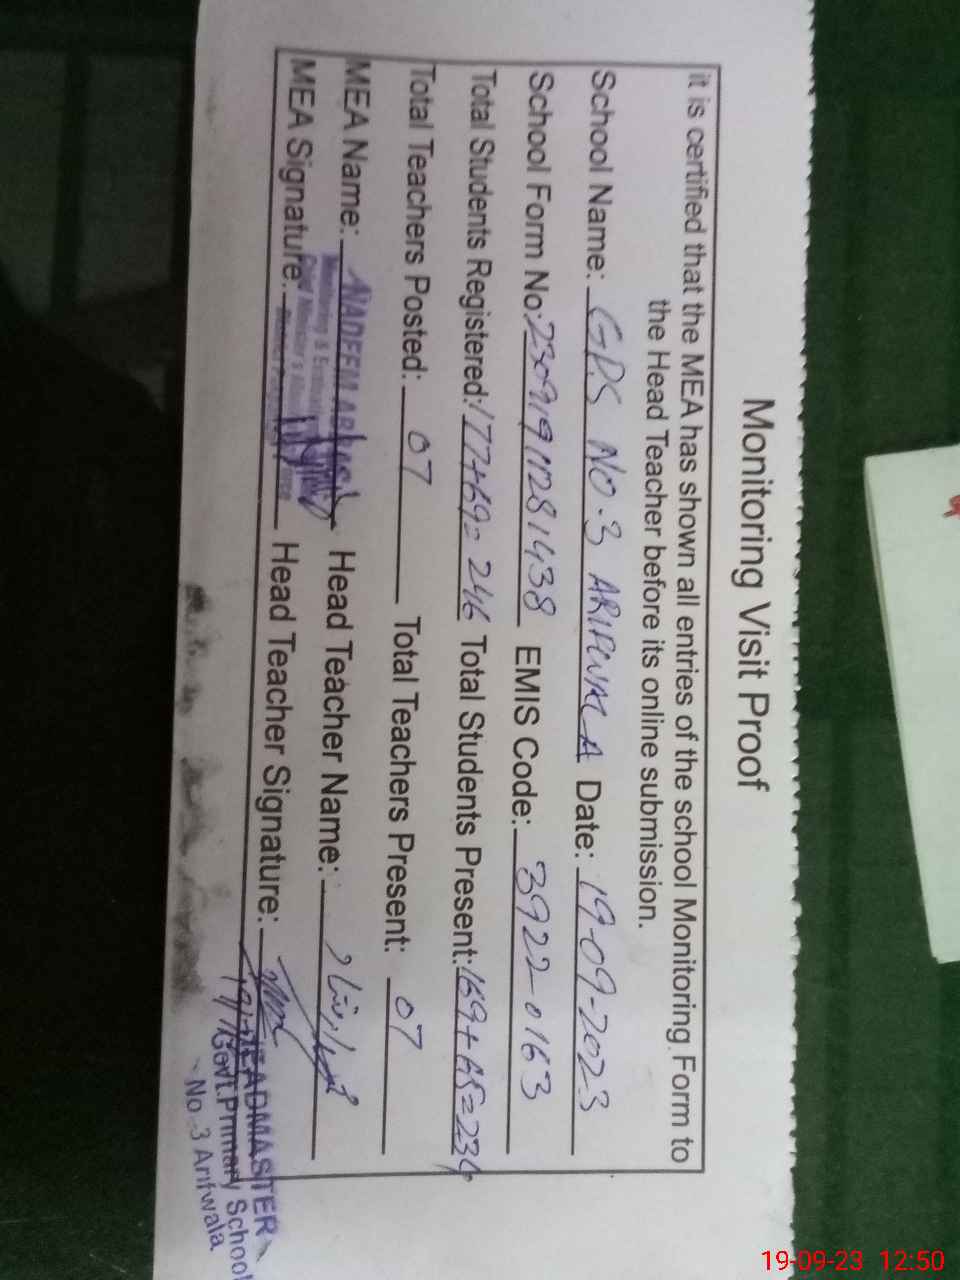 Monitoring Visit Proof
it is certified that the MEA has shown all entries of the school Monitoring Form to
the Head Teacher before its online submission.
School Name: GPS NO-3 ARIFWALA Date: 19-09-2023
School Form No: EMIS Code: 3922-0163
Total Students Registered: 177+69=246 Total Students Present: 169+65=234
Total Teachers Posted: 07 Total Teachers Present: 07
MEA Name: NADEEM Head Teacher Name:
MEA Signature: Head Teacher Signature:
HEADMASTER
Govt. Primary School
No. 3 Arifwala
19-09-23 12:50